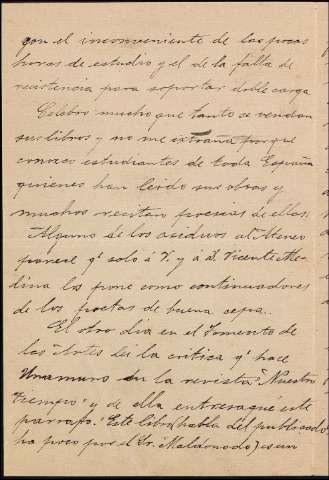 con el inconveniente de las pocas
horas de estudio y el de la falta de
resistencia para soportar doble carga
Celebro mucho que tanto se vendan
sus libros y no me extraña porque
conozco estudiantes de toda España
quienes han leido sus obras y
muchos recitan poesias de ellas.
Alguno de los asiduos al Ateneo
parece q' solo á V. y á D. Vicente Me-
dina los pone como continuadores
de los poetas de buena cepa..
El otro dia en el Fomento de
las Artes lei la critica q' hace
Unamuno en la revista "Nuestro
Tiempo" y de ella entresaqué este
parrafo: "Este libro (habla del publicado
ha poco por el Sr. Maldonado) es un